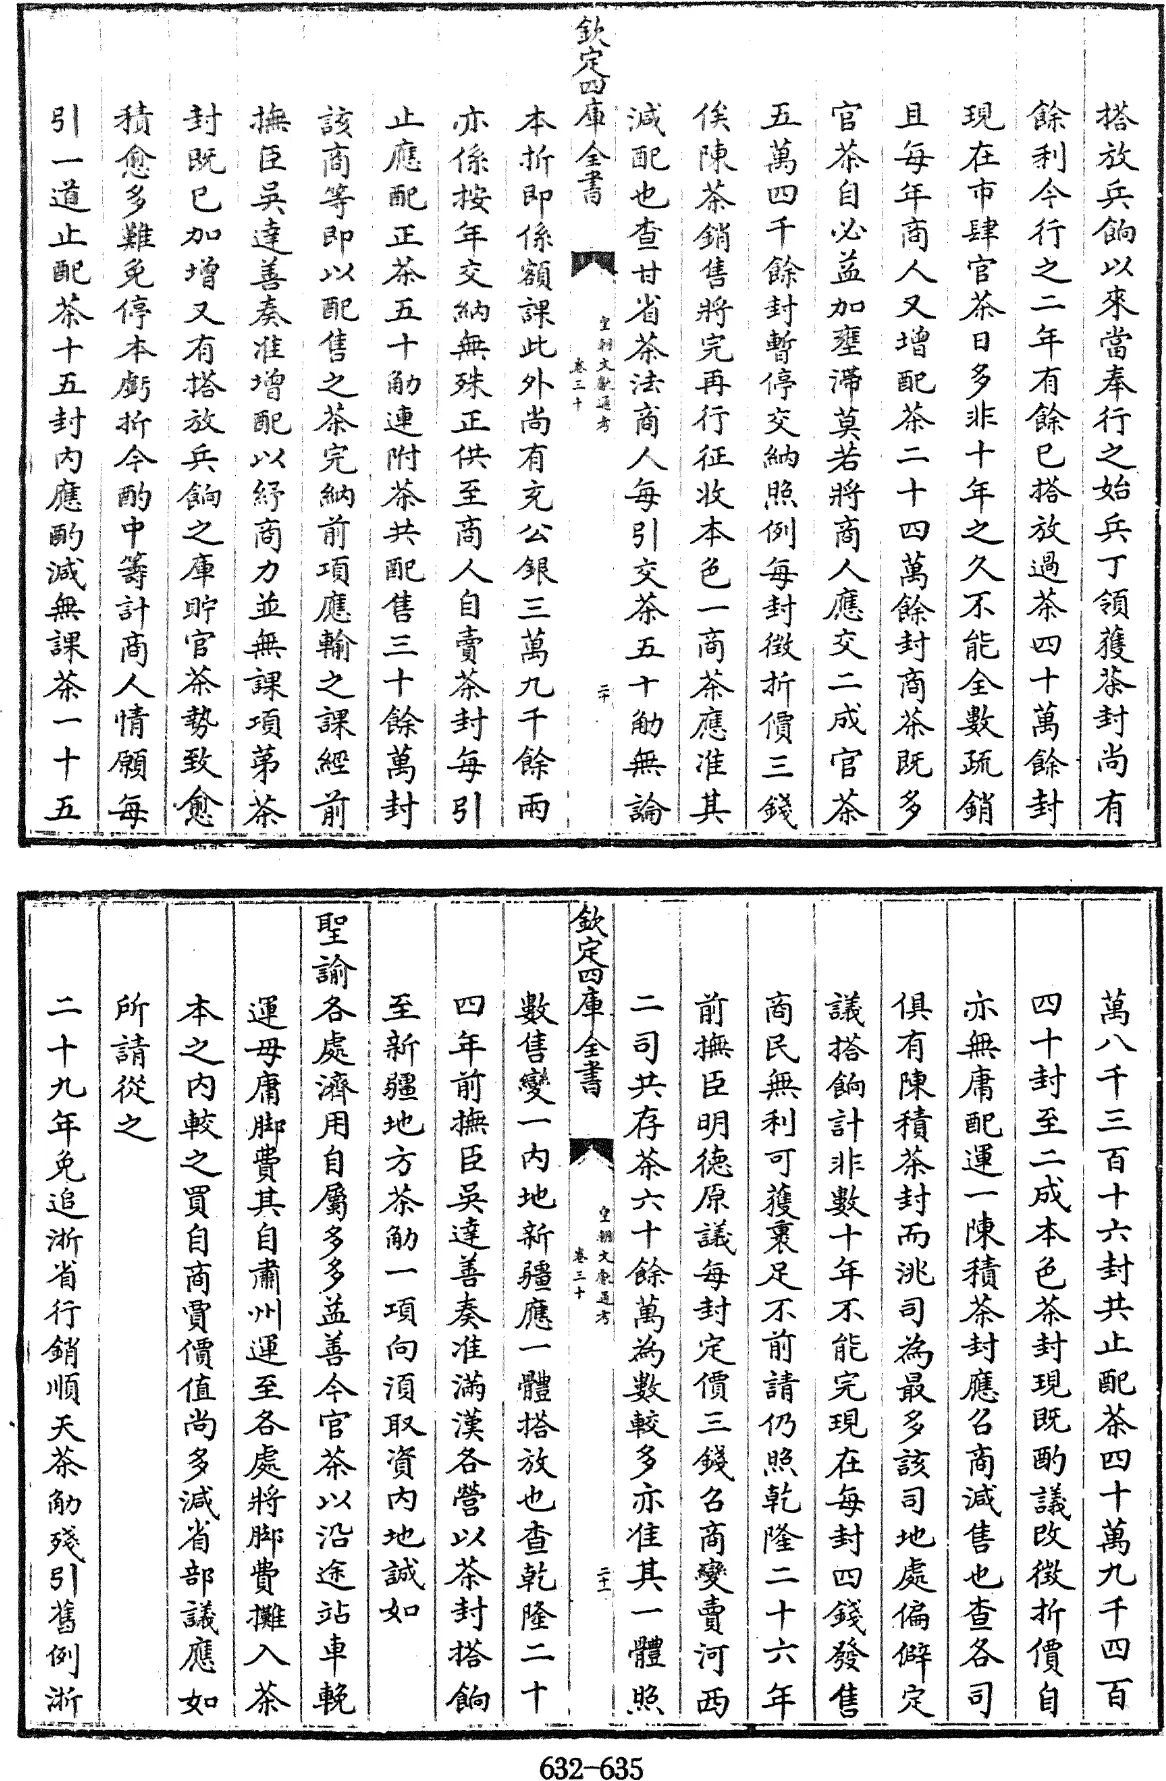 搭放兵餉以來當奉行之始兵丁領獲茶封尚有
餘利今行之二年有餘已搭放過茶四十萬餘封
現在市肆官茶日多非十年之久不能全數疏銷
且每年商人又增配茶二十四萬餘封商茶既多
官茶自必益加壅滯莫若將商人應交二成官茶
五萬四千餘封暫停交納照例每封徴折價三錢
俟陳茶銷售將完再行征收本色一商茶應准其
減配也查甘省茶法商人每引交茶五十觔無論
欽定四庫全書
皇朝文獻通考
卷三十
二十
本折即係額課此外尚有充公銀三萬九千餘兩
亦係按年交納無殊正供至商人自賣茶封每引
止應配正茶五十觔連附茶共配售三十餘萬封
該商等即以配售之茶完納前項應輸之課經前
撫臣吳達善奏准增配以紓商力並無課項苐茶
封既已加增又有搭放兵餉之庫貯官茶勢致愈
積愈多難免停本虧折今酌中籌計商人情願每
引一道止配茶十五封内應酌減無課茶一十五
萬八千三百十六封共止配茶四十萬九千四百
四十封至二成本色茶封現既酌議改徴折價自
亦無庸配運一陳積茶封應召商減售也查各司
俱有陳積茶封而洮司為最多該司地處偏僻定
議搭餉計非數十年不能完現在每封四錢發售
商民無利可獲裹足不前請仍照乾隆二十六年
前撫臣明德原議每封定價三錢召商變賣河西
二司共存茶六十餘萬為數較多亦准其一體照
欽定四庫全書
皇朝文獻通考
卷三十
二十一
數售變一内地新疆應一體搭放也查乾隆二十
四年前撫臣吳達善奏准滿漢各營以茶封搭餉
至新疆地方茶觔一項向湏取資内地誠如
聖諭各處濟用自屬多多益善今官茶以沿途站車輓
運毋庸脚費其自肅州運至各處將脚費攤入茶
本之内較之買自商賈價值尚多減省部議應如
所請從之
二十九年免追浙省行銷順天茶觔殘引舊例浙
632-635